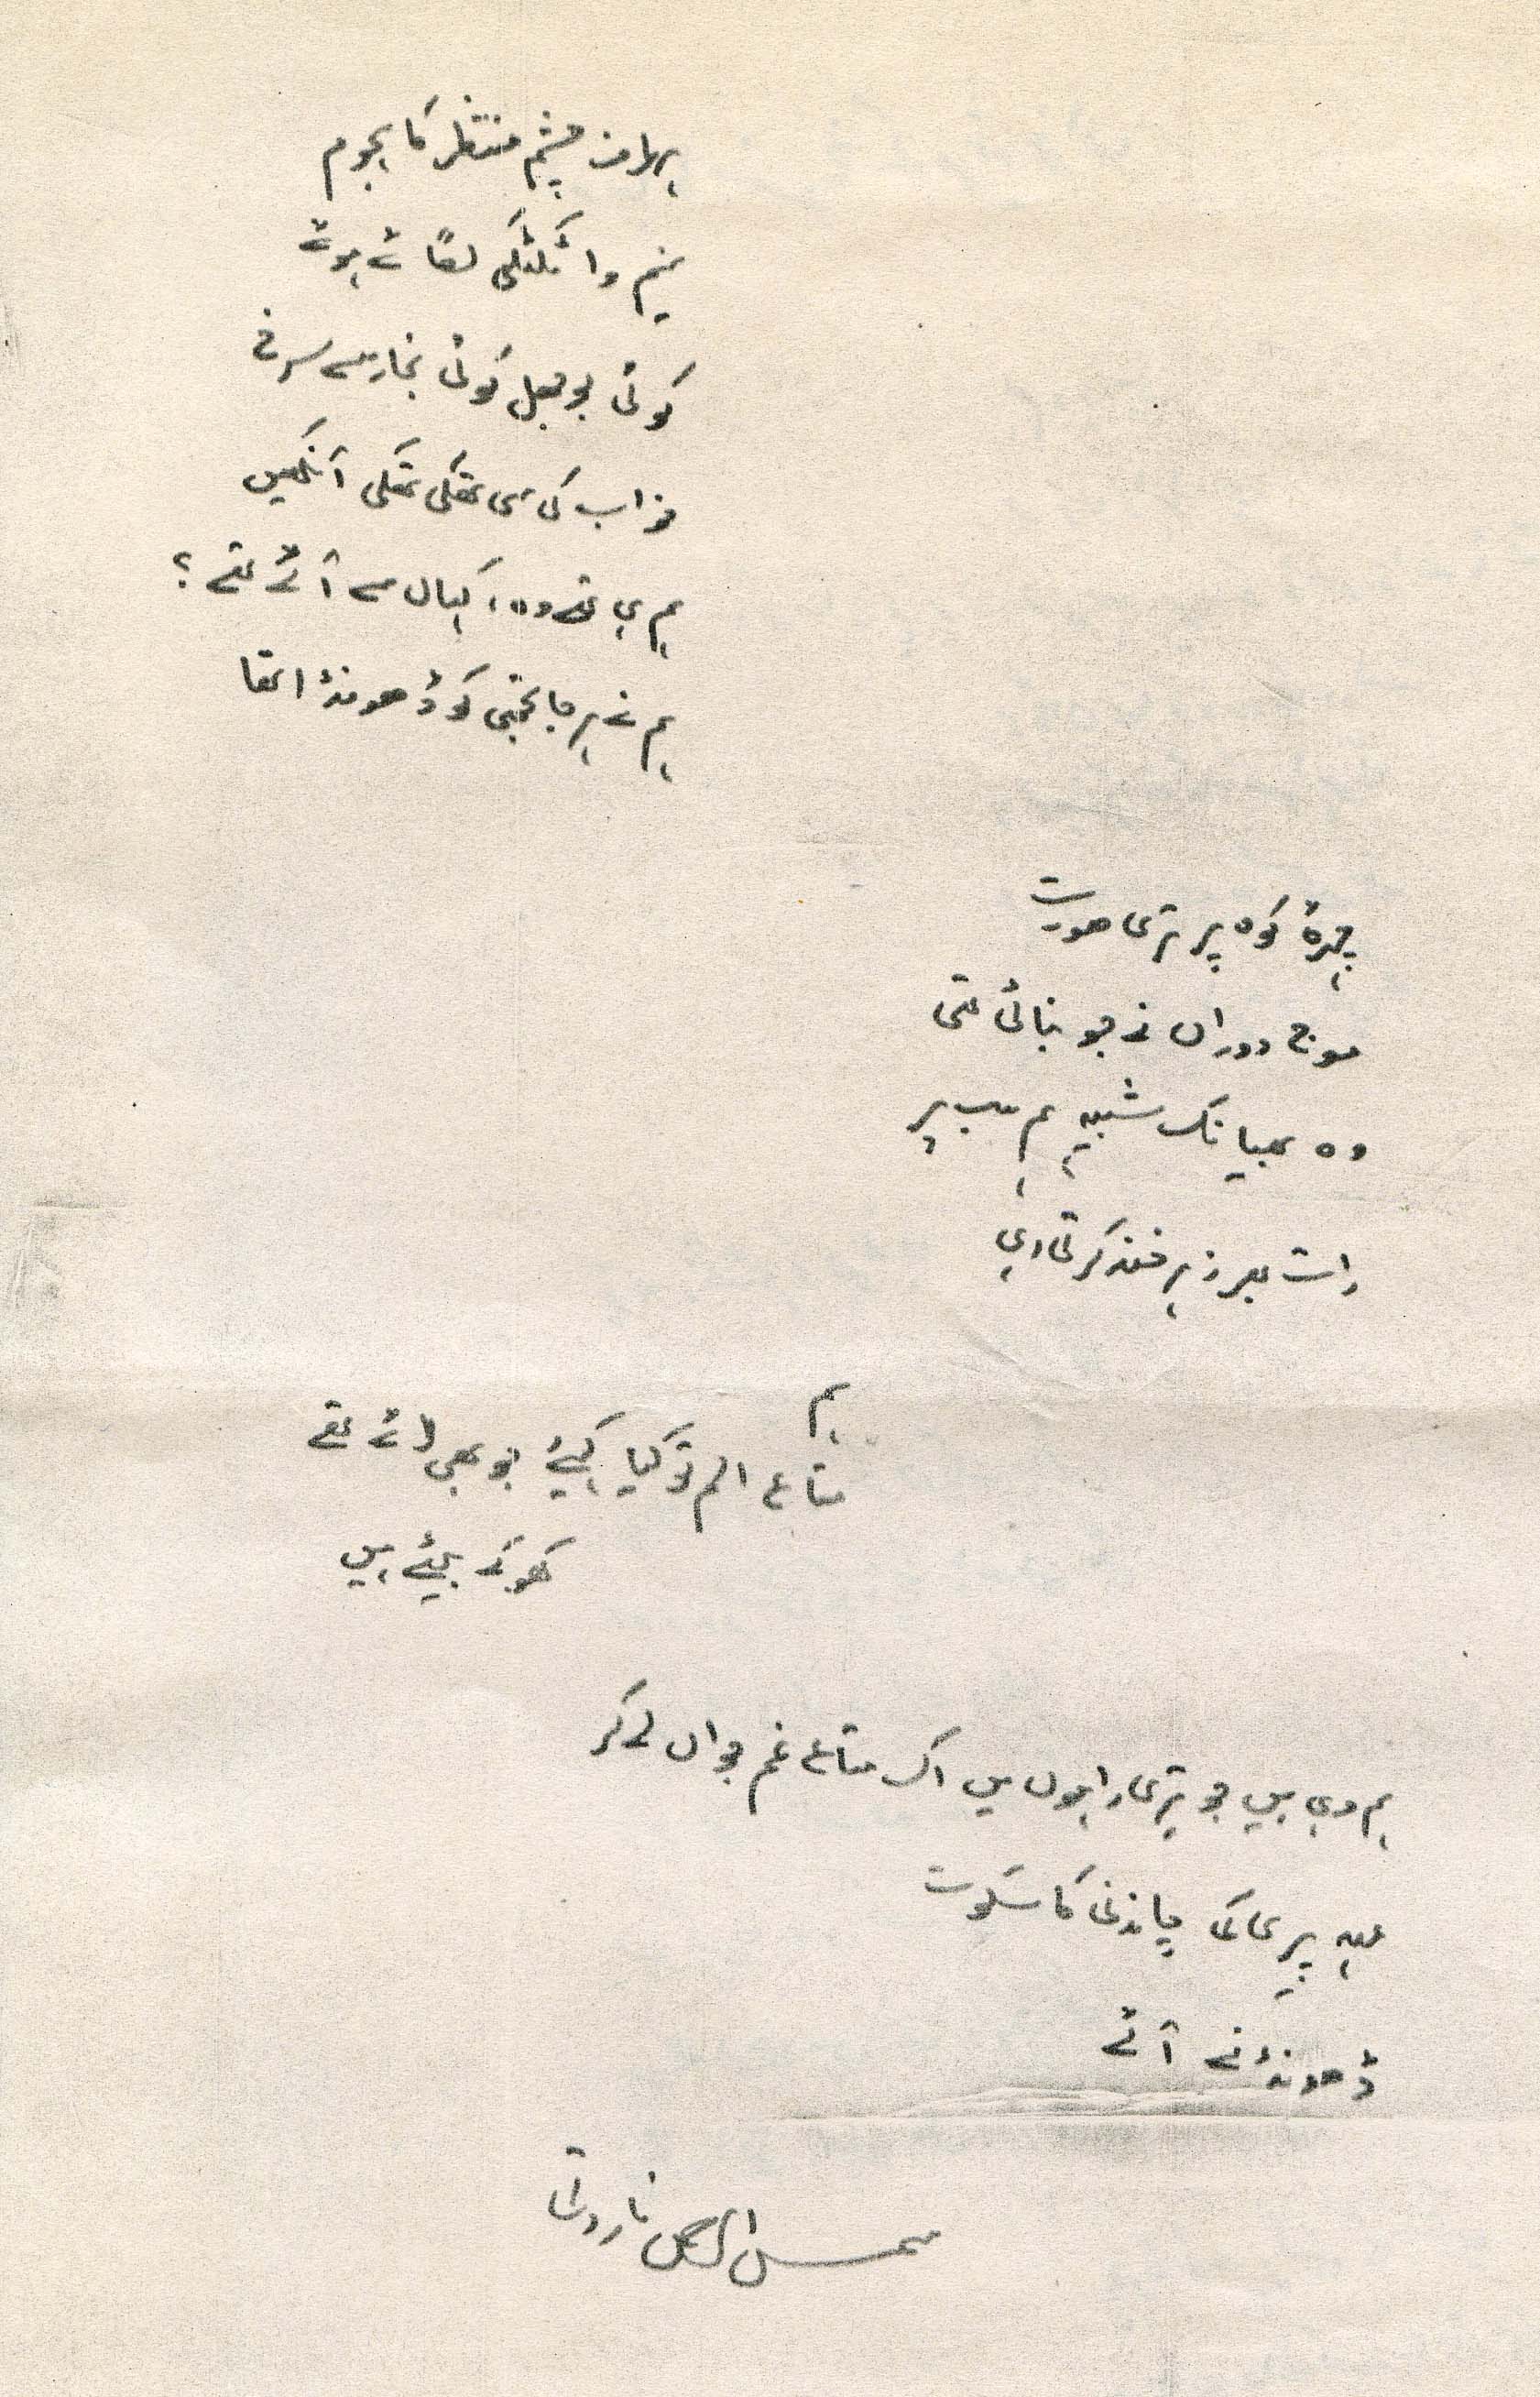 ہر طرف چشم منتظر کا ہجوم
نیم وا ٹکٹکی لگائے ہوئے
کوئی بوجھل کوئی بخار سے سرخ
خواب کی سی تھکی تھکی آنکھیں
ہم ہی تھے وہ، کہاں سے آئے تھے؟
ہم نے ہر جا تجھی کو ڈھونڈا تھا
چہرۂ کوہ پر تری صورت
موج دوراں نے جو بنائی تھی
وہ بھیانک شبیہ ہم سب پر
رات بھر زہر خند کرتی رہی
ہم
متاع الم تو کیا کہیئے جو بھی لائے تھے
کھو کے بیٹھے ہیں
ہم وہی ہیں جو تیری راہوں میں اک متاع غم جواں لے کر
عہد پیری کی چاندنی کا سکوت
ڈھونڈنے آئے
شمس الرحمن فاروقی